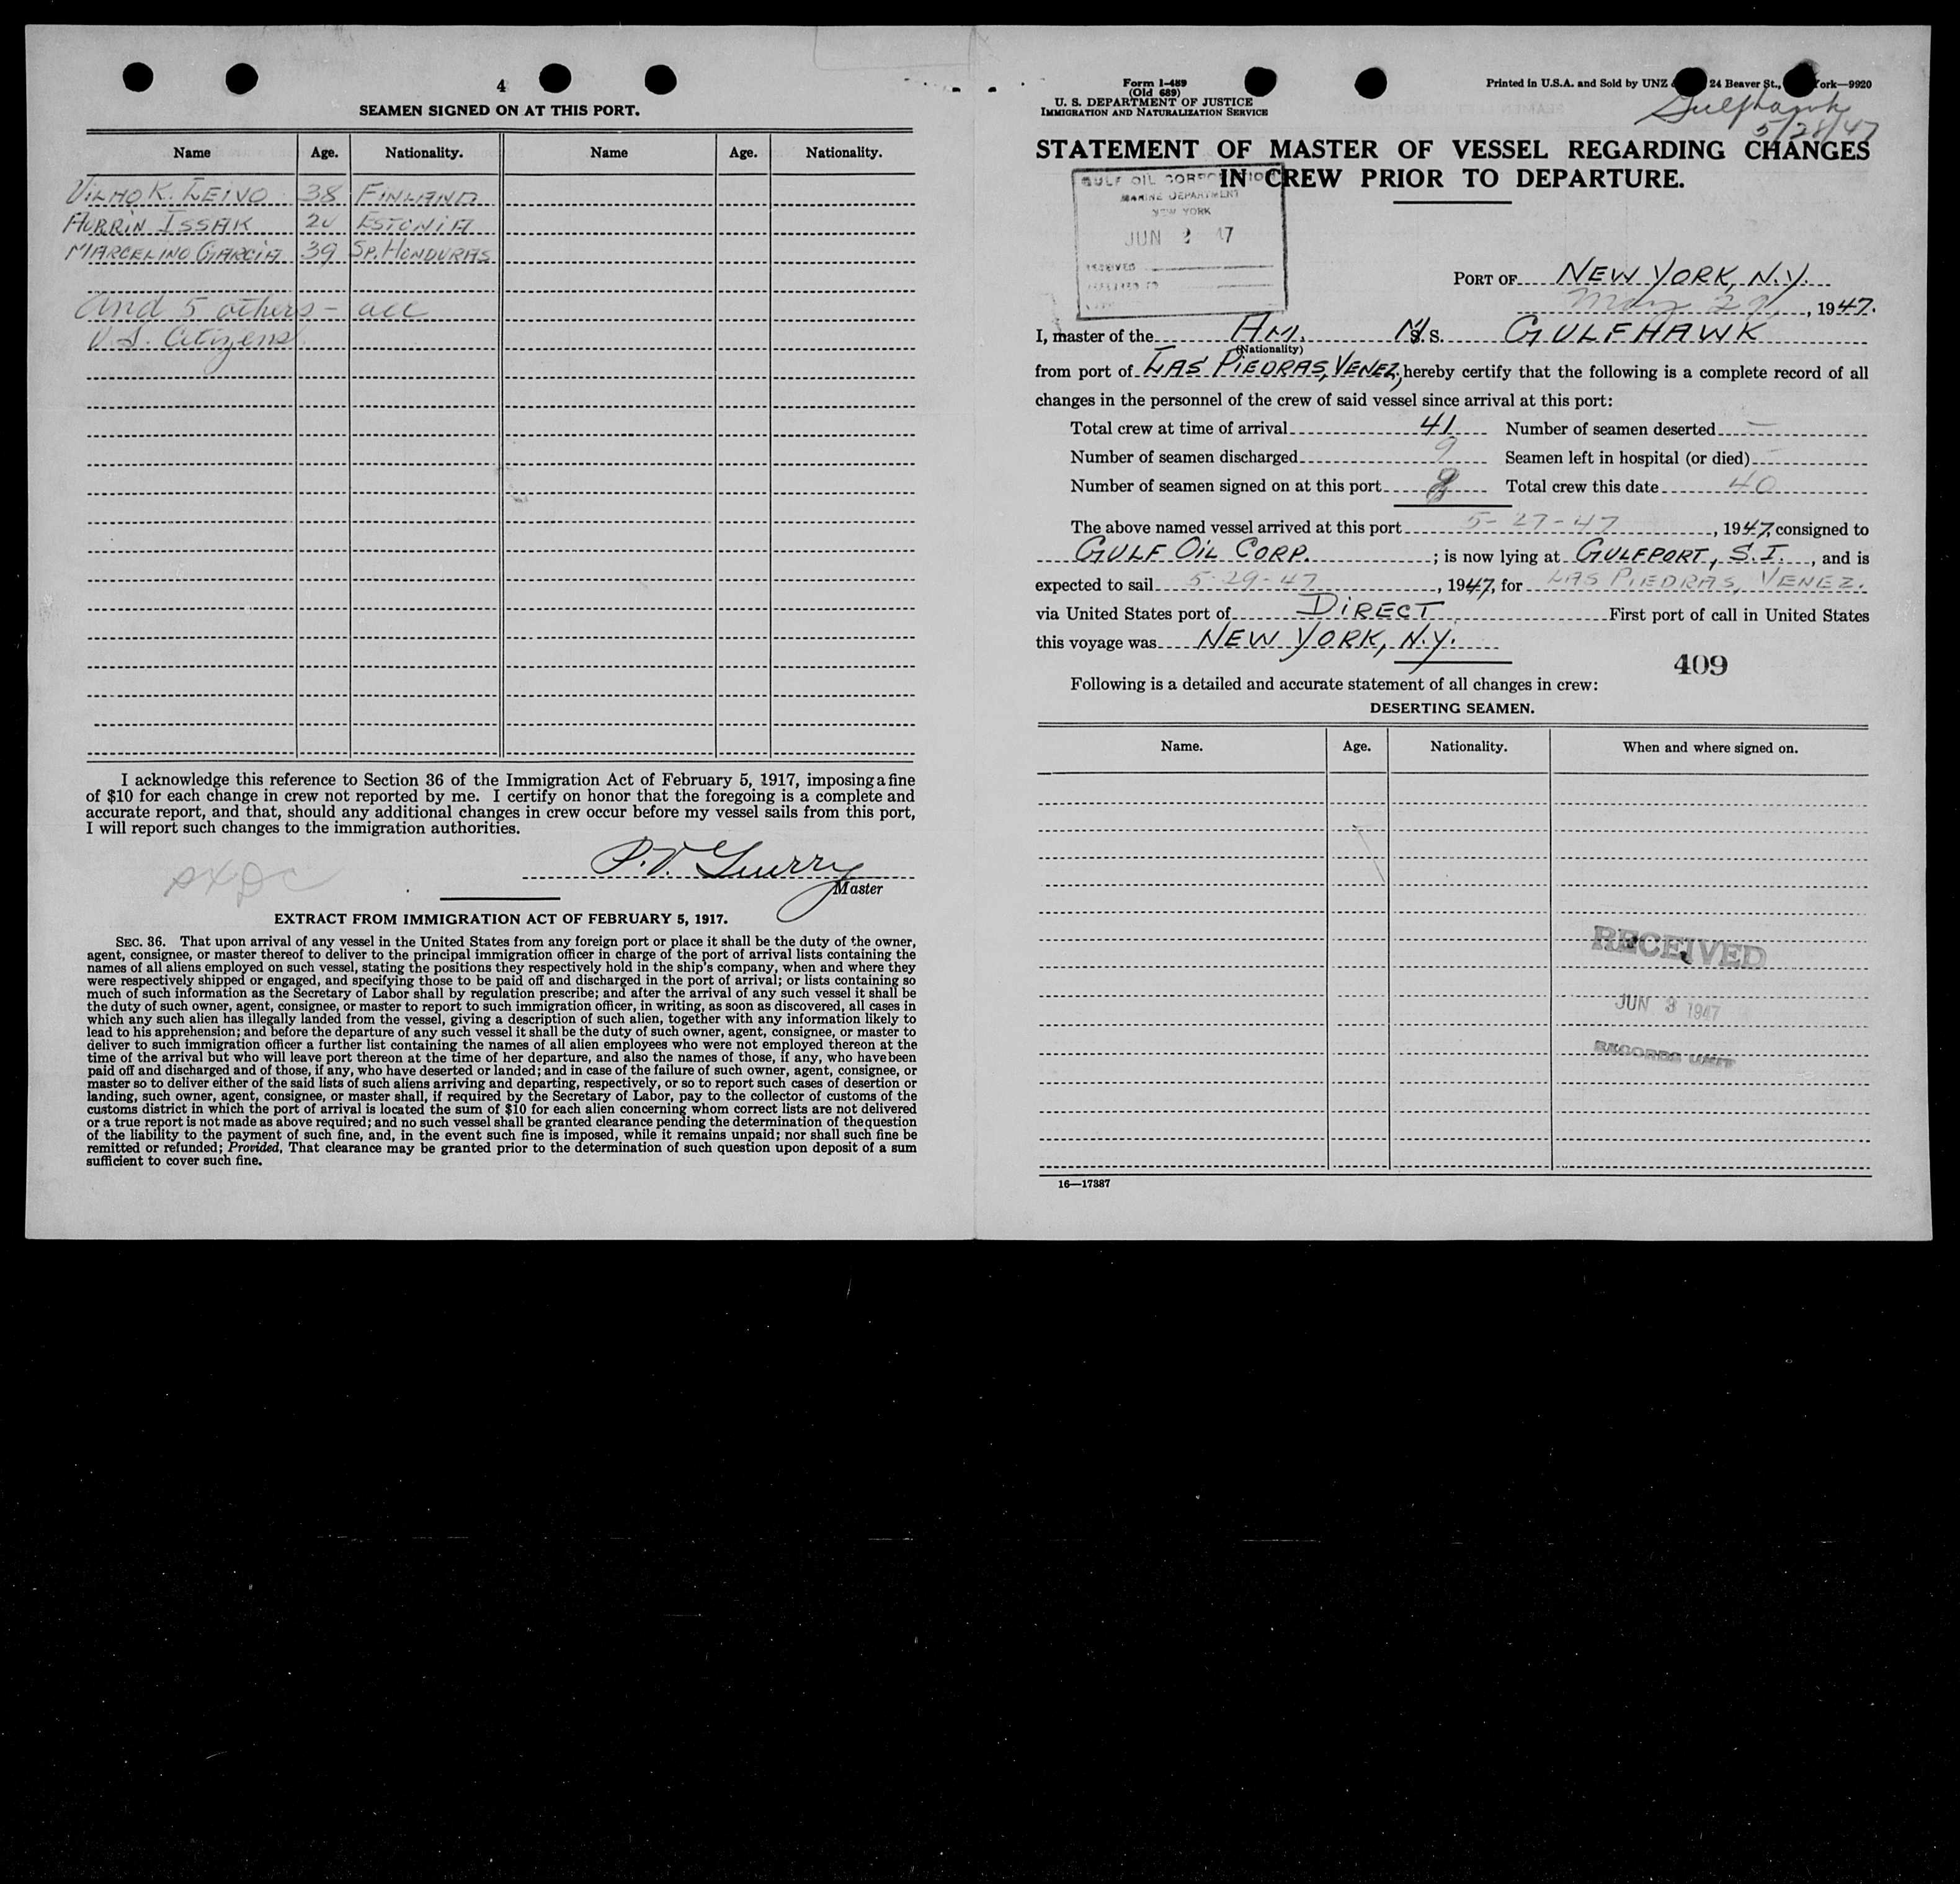 4
SEAMEN SIGNED ON AT THIS PORT.
Name Age. Nationality. Name Age. Nationality.
VILHO K. LEIVO 38 FINLAND
ISSAK ESTONIA
MARCELINO GARCIA 39 SP. HONDURAS
And 5 others - all
U.S. Citizens
I acknowledge this reference to Section 36 of the Immigration Act of February 5, 1917, imposing a fine
of $10 for each change in crew not reported by me. I certify on honor that the foregoing is a complete and
accurate report, and that, should any additional changes in crew occur before my vessel sails from this port,
I will report such changes to the immigration authorities.
Master
EXTRACT FROM IMMIGRATION ACT OF FEBRUARY 5, 1917.
SEC. 36. That upon arrival of any vessel in the United States from any foreign port or place it shall be the duty of the owner,
agent, consignee, or master thereof to deliver to the principal immigration officer in charge of the port of arrival lists containing the
names of all aliens employed on such vessel, stating the positions they respectively hold in the ship's company, when and where they
were respectively shipped or engaged, and specifying those to be paid off and discharged in the port of arrival; or lists containing so
much of such information as the Secretary of Labor shall by regulation prescribe; and after the arrival of any such vessel it shall be
the duty of such owner, agent, consignee, or master to report to such immigration officer, in writing, as soon as discovered, all cases in
which any such alien has illegally landed from the vessel, giving a description of such alien, together with any information likely to
lead to his apprehension; and before the departure of any such vessel it shall be the duty of such owner, agent, consignee, or master to
deliver to such immigration officer a further list containing the names of all alien employees who were not employed thereon at the
time of the arrival but who will leave port thereon at the time of her departure, and also the names of those, if any, who have been
paid off and discharged and of those, if any, who have deserted or landed; and in case of the failure of such owner, agent, consignee, or
master so to deliver either of the said lists of such aliens arriving and departing, respectively, or so to report such cases of desertion or
landing, such owner, agent, consignee, or master shall, if required by the Secretary of Labor, pay to the collector of customs of the
customs district in which the port of arrival is located the sum of $10 for each alien concerning whom correct lists are not delivered
or a true report is not made as above required; and no such vessel shall be granted clearance pending the determination of the question
of the liability to the payment of such fine, and, in the event such fine is imposed, while it remains unpaid; nor shall such fine be
remitted or refunded; Provided, That clearance may be granted prior to the determination of such question upon deposit of a sum
sufficient to cover such fine.
Form I-489
(Old 689)
U. S. DEPARTMENT OF JUSTICE
IMMIGRATION AND NATURALIZATION SERVICE
Printed in U.S.A. and Sold by UNZ 24 Beaver St., York—9920
Gulfhawk
5/28/47
STATEMENT OF MASTER OF VESSEL REGARDING CHANGES
IN CREW PRIOR TO DEPARTURE.
GULF OIL CORPORATION
MARINE DEPARTMENT
NEW YORK
JUN 2 47
RECEIVED
PORT OF NEW YORK, N.Y.
May 29, 1947.
I, master of the AM. M. S. GULFHAWK
(Nationality)
from port of LAS PIEDRAS, VENEZ., hereby certify that the following is a complete record of all
changes in the personnel of the crew of said vessel since arrival at this port:
Total crew at time of arrival 41 Number of seamen deserted —
Number of seamen discharged 9 Seamen left in hospital (or died) —
Number of seamen signed on at this port 8 Total crew this date 40
The above named vessel arrived at this port 5-27-47, 1947, consigned to
GULF OIL CORP. ; is now lying at GULFPORT, S.I., and is
expected to sail 5-29-47, 1947, for LAS PIEDRAS, VENEZ.
via United States port of DIRECT First port of call in United States
this voyage was NEW YORK, N.Y.
409
Following is a detailed and accurate statement of all changes in crew:
DESERTING SEAMEN.
Name. Age. Nationality. When and where signed on.
RECEIVED
JUN 3 1947
RECORDS UNIT
16—17387